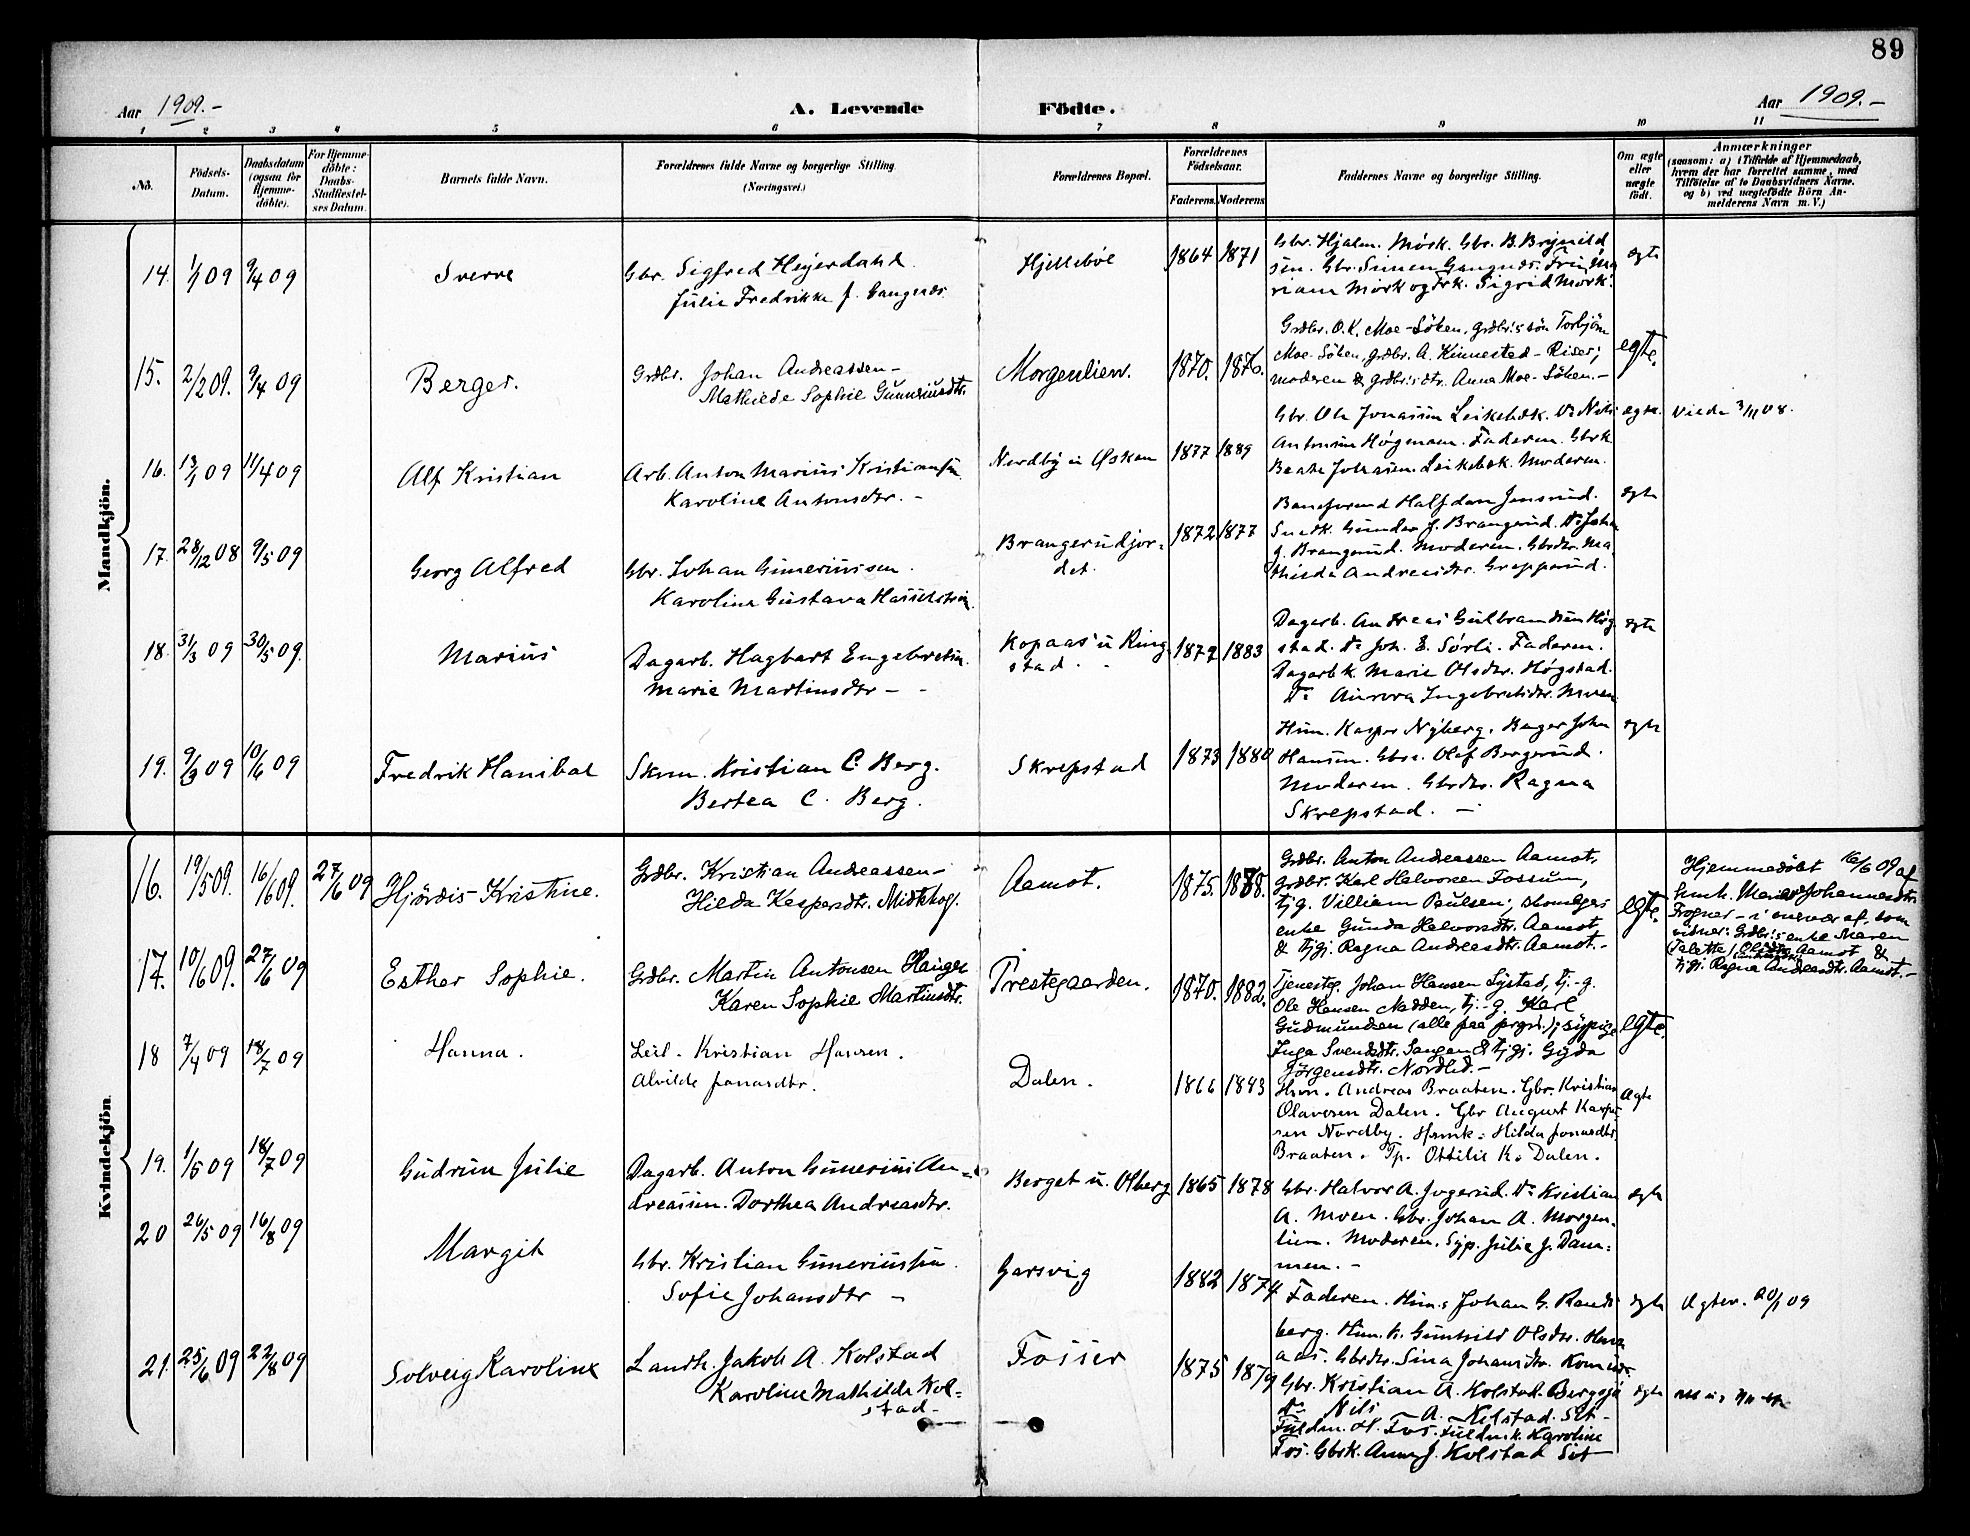 89
Aar 1909.-
A. Levende Födte.
Aar 1909.-
1 2 3 4 5 6 7 8 9 10 11
No.
Födsels-Datum.
Daabsdatum (ogsaa for Hjemme-döbte).
For Hjemme-döbte: Daabs-Stadfæstel-ses Datum.
Barnets fulde Navn.
Forældrenes fulde Navne og borgerlige Stilling.
(Næringsvei.)
Forældrenes Bopæl.
Forældrenes Födselsaar.
Faderens. Moderens.
Faddernes Navne og borgerlige Stilling.
Om ægte eller uægte födt.
Anmærkninger
(saasom: a) i Tilfælde af Hjemmedaab,
hvem der har forrettet samme, med
Tilföielse af to Daabsvidners Navne.
og b) ved uægtefödte Börn An-
melderens Navn m. V.)
Mandkjön.
14. 1/1 09 9/4 09 Sverre
Gbr. Sigfred Heyerdahl
Julie Fredrikke f. Gangnæs
Hjellebøl 1864 1871
Gbr. Hjalm. Mörk. Gbr. B. Brynild
sen. Gbr. Simen Gangnæs. Fru Ma
riane Mörk og Frk. Sigrid Mörk.
egte
15. 2/2 09. 9/4 09 Berger.
Grdbr. Johan Andreassen -
Mathilde Sophie Gunneriusdtr.
Morgenlien. 1870. 1876.
Grdbr. O. K. Moe-Söken, grdbr.s sön Torbjörn
Moe-Söken, grdbr. A. Kinnestad-Riser;
moderen & grdbr.s dtr. Anna Moe-Söken.-
egte.
16. 13/1 09 11/4 09 Alf Kristian
Arb. Anton Marius Kristiansen
Karoline Antonsdtr. -
Nordby u Øsken 1877 1889
Gbr. Ole Jonassen Leikebæk. Do Nils
Antonsen Høgmoen. Faderen. Gbrk
Beate Johnsen. Leikebek. Moderen.
egte. Viede 3/11 08.
17. 28/12 08 9/5 09 Georg Alfred
Gbr. Johan Gunerius sen.
Karoline
Brangerudjor-
det. 1872 1877
Baneformand Halfdan Jensrud.
Snedk. Gunder J. Brangerud. Do Johan
J. Brangerud. Moderen. Gbrdtr. Ma
thilde Andreasdtr. Grepperud.
egte
18. 31/3 09 30/5 09. Marius
Dagarb. Hagbart Engebretsen.
Marie Martinsdtr -
Kopaas u Ring
stad. 1872 1883
Dagarb. Andreas Gulbrandsen Høg
stad. Do Joh. E. Sørli. Faderen.
Dagarb k. Marie Olsdtr. Høgstad.
Do Aurora Ingebretsdtr. Moen
egte
19. 9/3 09 10/6 09 Fredrik Hanibal
Skom. Kristian C. Berg.
Bertea C. Berg.
Skrepstad 1873 1880
Hum. Kasper Nyberg. Bager John
Hansen. Gbrs. Olaf Bergerud.
Moderen. Gbrdtr. Ragna
Skrepstad. -
egte
Kvindekjön.
16. 19/5 09. 16/6 09. 27/6 09 Hjördis Kristine.
Grdbr. Kristian Andreassen -
Hilda Kaspersdtr. Midtskog.
Aamot. 1875. 1878.
Grdbr. Anton Andreassen Aamot,
Grdbr. Karl Halvorsen Fossum,
tjg. Villiam Paulsen; skomager
enke Gunda Halvorsdtr. Aamot
& tjgj. Ragna Andreasdtr. Aamot.-
egte.
Hjemmedöbt 16/6 09 af
hmk. Johannesdtr.
Frogner - i nærvær af, som
vidner: Grdbr.s enke Maren
Aamot &
tjgj. Ragna Andreasdtr. Aamot.-
17. 10/6 09. 27/6 09 Esther Sophie.
Grdbr. Martin Antonsen Hauger
Karen Sophie Martinsdtr.
Prestegaarden. 1870. 1882.
Tjenestg. Johan Hansen Systad, tj.-g.
Ole Hansen Nadden, tj.-g. Karl
Gudmundsen (alle paa prgd.); sypige
Inga Svendsdtr. Sangen & tjgj. Gyda
Jörgensdtr. Nordlid.-
egte.
18 7/4 09 18/7 09 Hanna.
Leil. Kristian Hansen.
Alvilde Jonasdtr.
Dalen. 1866 1883
Hum. Andreas Braaten. Gbr. Kristian
Olavesen Dalen. Gbr August Kasper
sen Nordby. Humk: Hilda Jonasdtr.
Braaten. Tp. Ottilie K. Dalen.
Ægte
19. 1/5 09 18/7 09 Gudrun Julie
Dagarb. Anton Gunerius An-
dreassen. Dorthea Andreasdtr.
Berget u. Olberg 1865 1878
Gbr. Halvor A. Jogerud. Do Kristian
A. Moen. Gbr. Johan A. Morgen-
lien. Moderen. Syp. Julie J. Dam-
men. -
egte
20 26/5 09 16/8 09 Margit
Gbr. Kristian Guneriussen.
Sofie Johansdtr -
Garsvig 1882 1874
Faderen. Hum. Johan G. Rands
berg. Hum. k. Gunhild Olsdtr.
Gbrdtr. Sina Johansdtr.
egte Ægtev. 20/1 09
21. 25/6 09 22/8 09 Solveig Karoline
Landh. Jakob A. Kolstad
Karoline Mathilda Kol-
stad -
Fosser 1875 1879
Gbr. Kristian A. Kolstad. Bergsjø
do Nils A. Kolstad. Set-
Fuldm. H. Fos. Fuldmk. Karoline
Fos. Gbrk. Anna J. Kolstad Set
egte